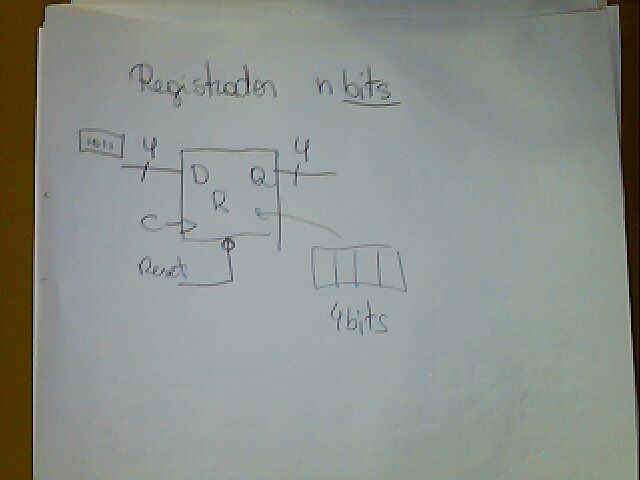 Registrador n bits
4 4
D Q
R
C
Reset
4 bits